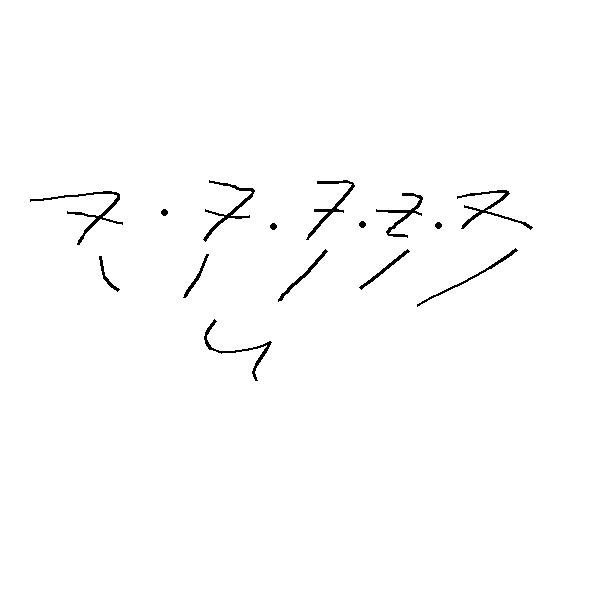 7 · 7 · 7 · z · 7
4